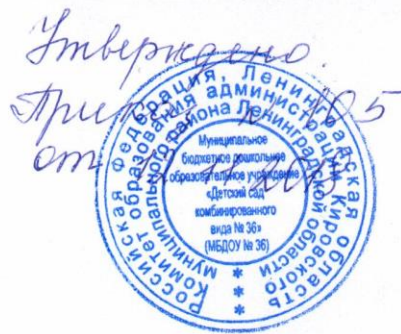 Утверждено.
Приказ 105
от
Российская Федерация, Ленинградская область
Комитет образования администрации Кировского
муниципального района Ленинградской области
Муниципальное
бюджетное дошкольное
образовательное учреждение
«Детский сад
комбинированного
вида № 36»
(МБДОУ № 36)